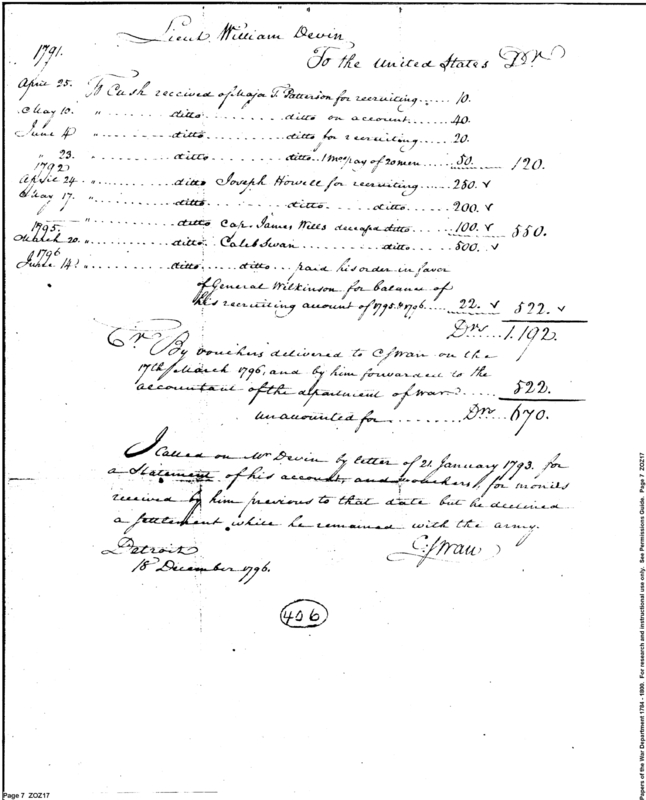 Lieut William Devin
To the United States Drs
1791.
April 25. To Cash received of Major J. Patterson for recruiting...... 10.
May 10. " ........ ditto ........ ditto on account ........ 40.
June 4 " ........ ditto ........ ditto for recruiting ........ 20.
" 23. " ........ ditto ........ ditto. 1 Mos pay of 20 men .. 50. 120.
1792
April 24. " ........ ditto Joseph Howell for recruiting ........ 250. v
May 17. " ........ ditto ........ ditto ........ ditto ........ 200. v
" ........ ditto Cap. James Wells deceasd ditto ........ 100. v 550.
1795.
March 20. " ........ ditto Caleb Swan ........ ditto ........ 500. v
1796
June 14. " ........ ditto ...... ditto ... paid his order in favor
of General Wilkinson for balance of
his recruiting account of 1795 & 1796 .... 22. v 522. v
Drs ...... 1.192.
Cr By vouchers delivered to C Swan on the
17th March 1796, and by him forwarded to the
accountant of the department of war ........ 522.
unaccounted for ........ Drs 670.
I called on Mr Devin by letter of 21 January 1793. for
a Statement of his account, and vouchers, for monies
received by him previous to that date but he declined
a settlement while he remained with the army.
Detroit
18 December 1796.
C. Swan
406
Page 7 ZOZ17
Papers of the War Department 1784 - 1800. For research and instructional use only. See Permissions Guide. Page 7 ZOZ17